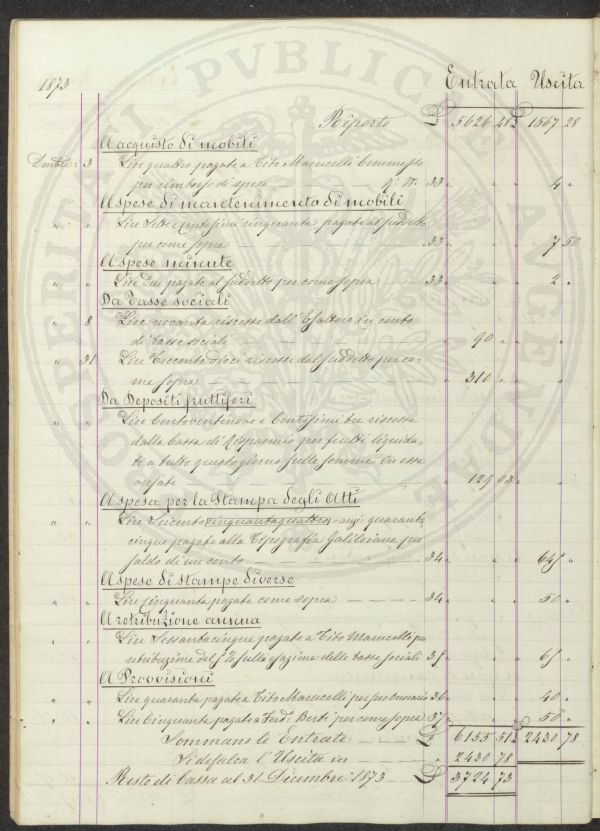 1873 Entrata Uscita
Riporto £ 5626 48 £ 1567 28
A acquisto di mobili
Dmbre 3 Lire quattro pagate a Tito Marucelli Commesso
per rimborso di spese 33 " " " 4 "
A spese di mantenimento di mobili
" " Lire Sette e centesimi cinquanta pagate al suddetto
per come sopra 33 " " " 7 50
A spese minute
" " Lire Due pagate al suddetto per come sopra 33 " " " 2 "
Da Tasse sociali
" 8 Lire novanta riscosse dall'Esattore in conto
di tasse sociali " 90 " " "
" 31 Lire Trecento dieci riscosse dal suddetto per co-
me sopra " 310 " " "
Da Depositi fruttiferi
Lire Centoventinove e Centesimi tre riscosse
dalla Cassa di Risparmio per frutti liquida-
ti a tutto questo giorno sulle somme in essa
versate " 129 03 " "
A spesa per la Stampa degli Atti
" " Lire Seicento cinquantaquattro = anzi quaranta
cinque pagate alla Tipografia Galileiana per
saldo di un conto 34 " " " 645 "
A spese di stampe diverse
" " Lire Cinquanta pagate come sopra 34 " " " 50 "
A retribuzione annua
" " Lire Sessantacinque pagate a Tito Marucelli per
retribuzione del 5 % sulla esazione delle tasse sociali 35 " " " 65 "
A Provvisioni
" " Lire quaranta pagate a Tito Marucelli per suo onorario 36 " " " 40 "
" " Lire Cinquanta pagate a Ferd. Berti per come sopra 37 " " " 50 "
Sommano le Entrate £ 6155 51 £ 2430 78
Si defalca l'Uscita in " 2430 78
Resto di Cassa al 31 Dicembre 1873 £ 3724 73
POSTERITATI PVBLICAE AVGENDAE